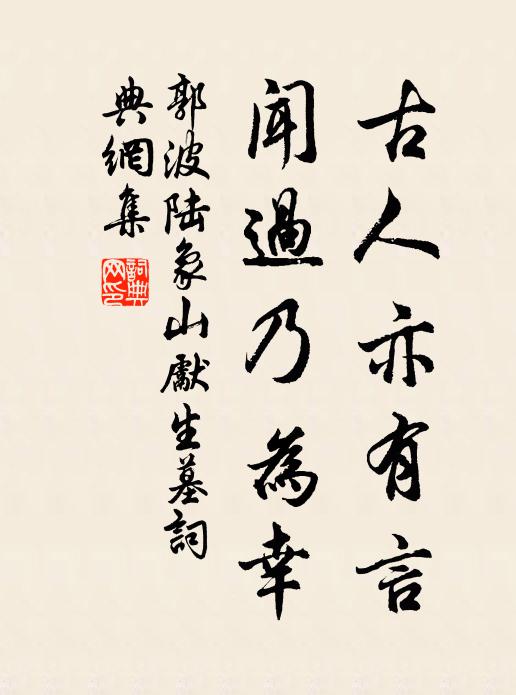 古人亦有言
聞過乃為幸
郭波陆象山獻生墓詞
典網集
詞典網印